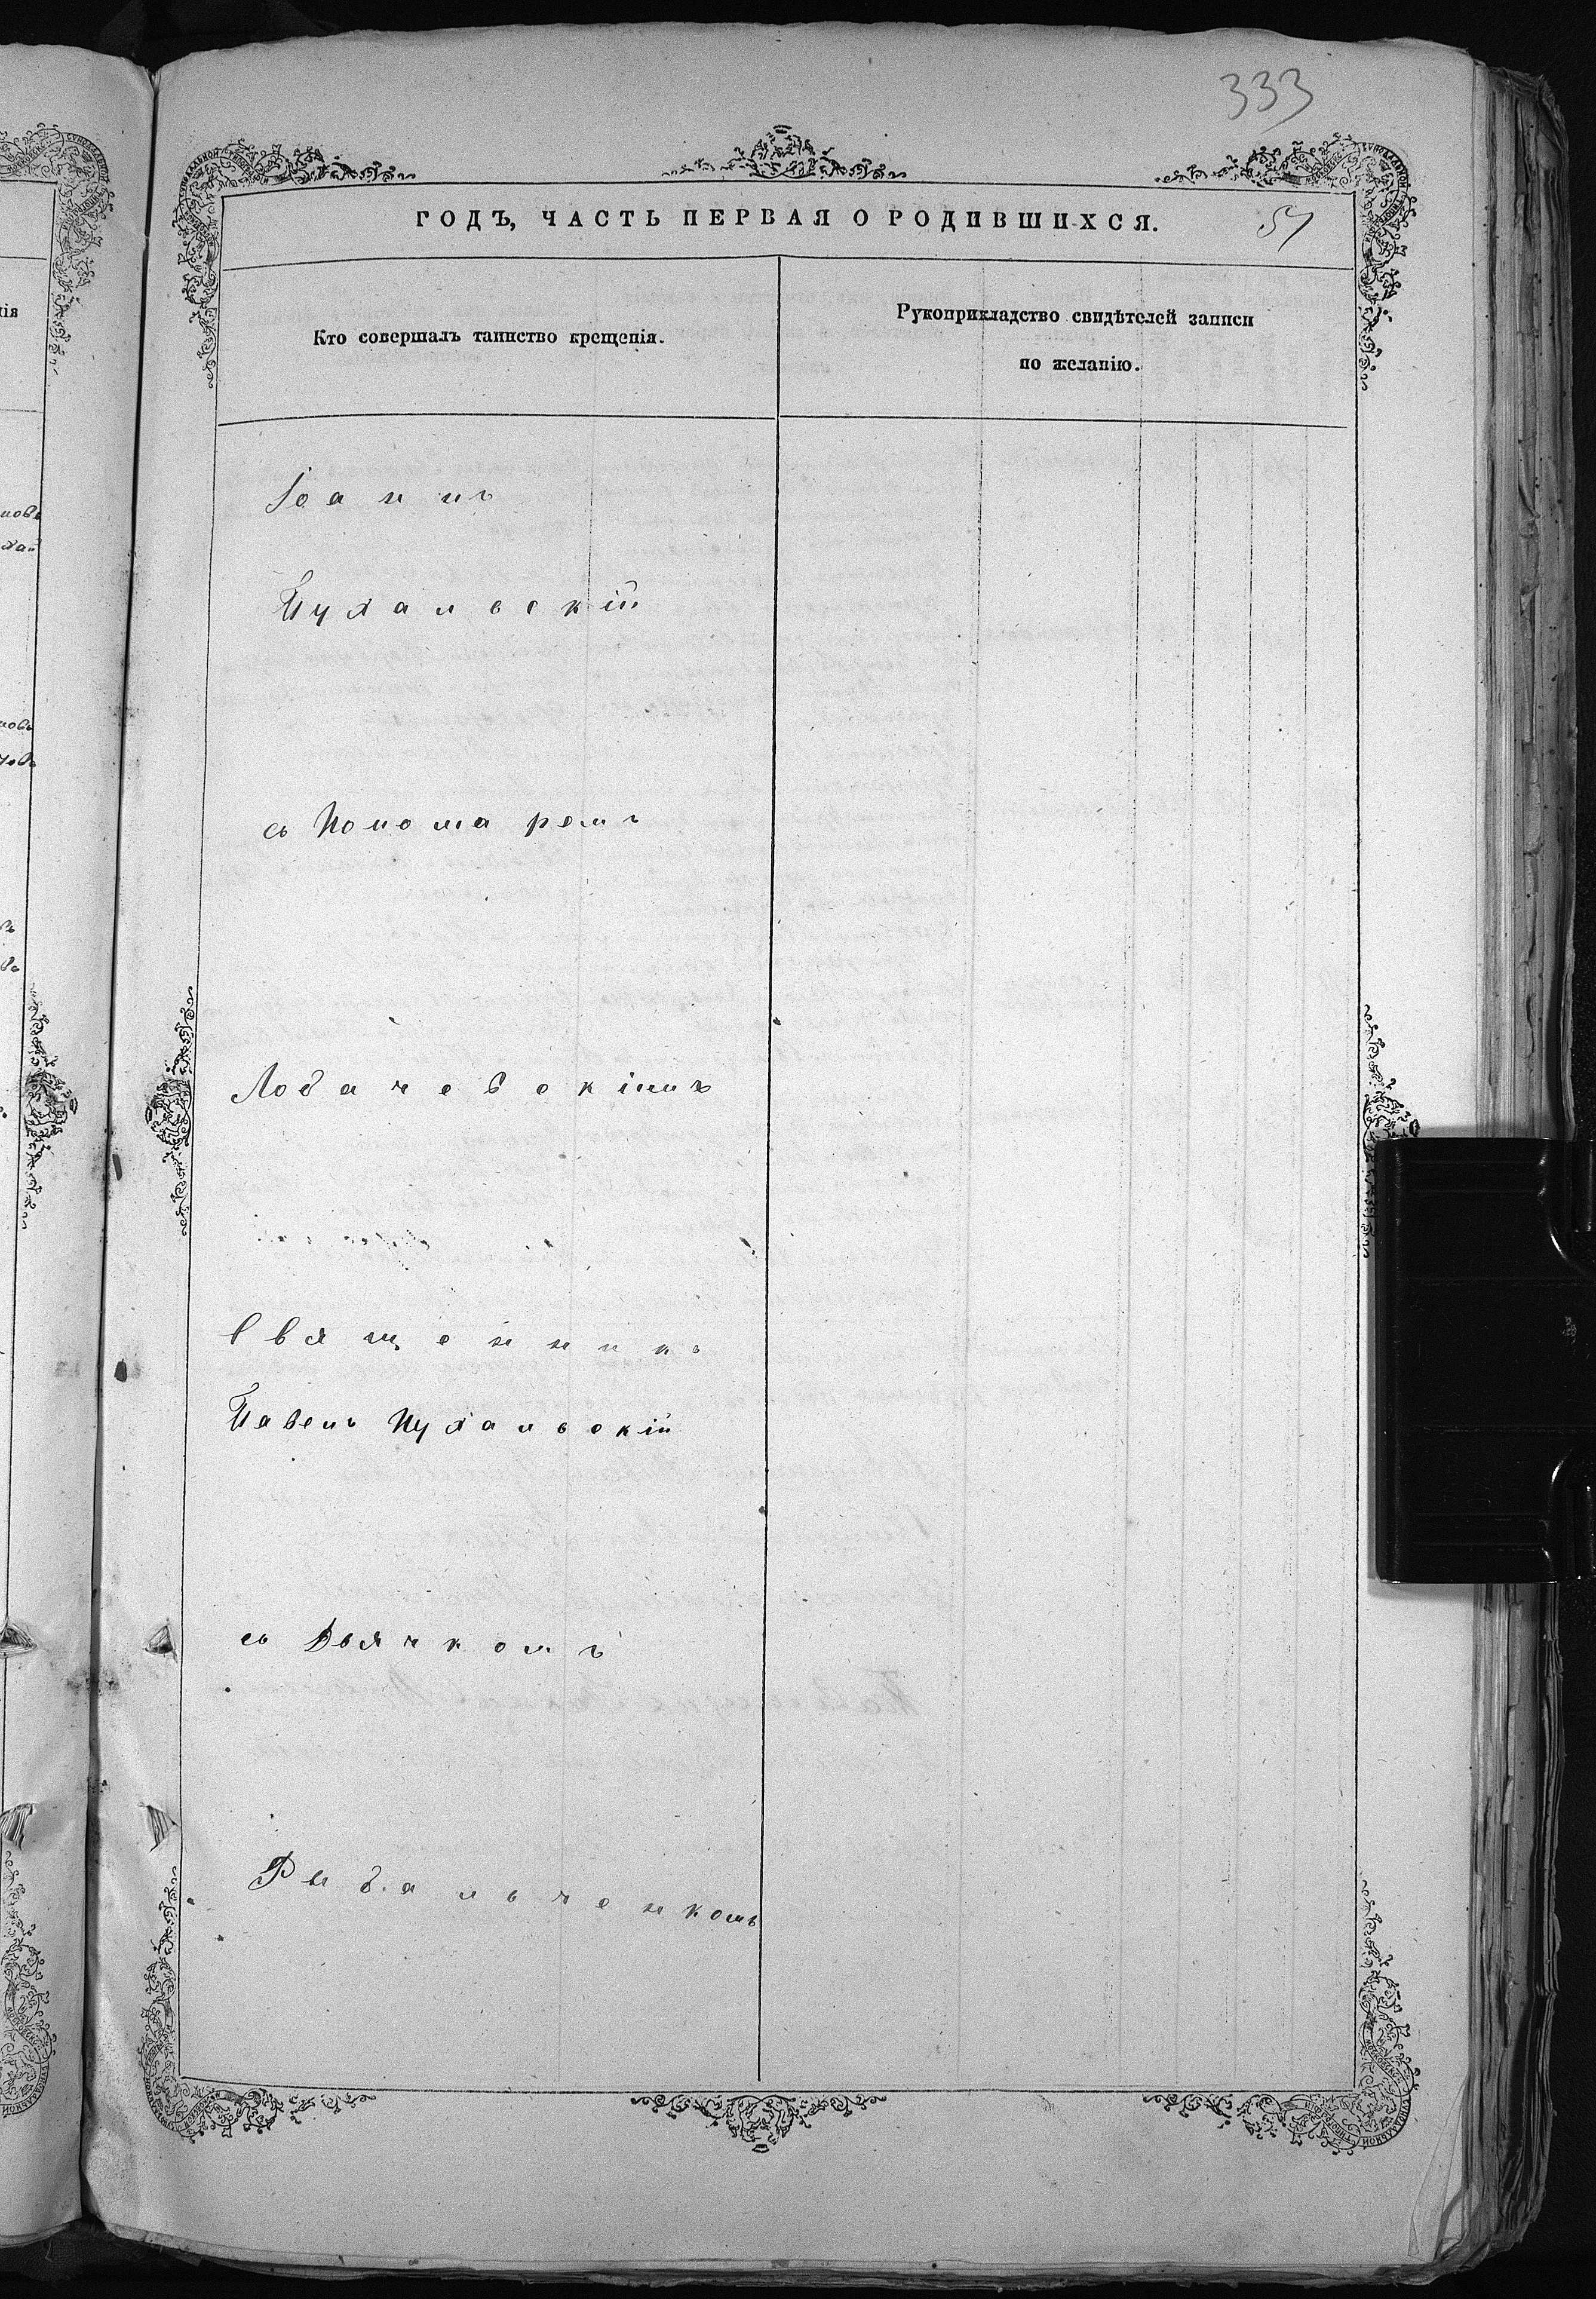 333
ГОДЪ, ЧАСТЬ ПЕРВАЯ О РОДИВШИХСЯ.
Кто совершалъ таинство крещенія.
Рукоприкладство свидѣтелей записи
по желанію.
Іоаннъ
Пухальскій
съ Пономаремъ
Лобачевскимъ
Священникъ
Павелъ Пухальскій
съ Дьячкомъ
Рыбальченкомъ